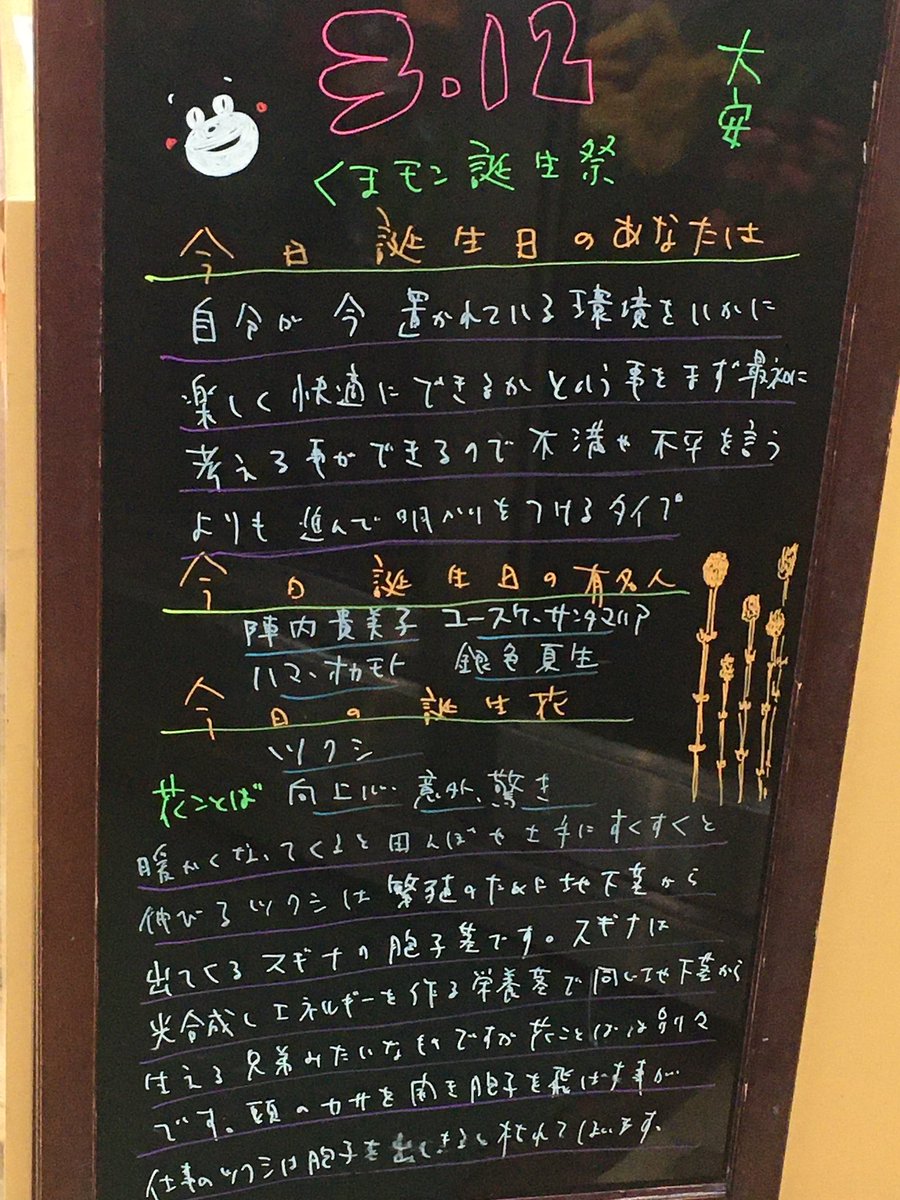 3.12
大安
くまモン誕生祭
今日誕生日のあなたは
自分が今置かれている環境をいかに
楽しく快適にできるかという事をまず最初に
考える事ができるので不満や不平を言う
よりも進んで明かりをつけるタイプ
今日誕生日の有名人
陣内貴美子 ユースケ・サンタマリア
ハマ・オカモト 銀色夏生
今日の誕生花
ツクシ
花ことば 向上心 意外、驚き
暖かくなってくると田んぼや土手にすくすくと
伸びるツクシは繁殖のために地下茎から
出てくるスギナの胞子茎です。スギナは
光合成しエネルギーを作る栄養茎で同じ地下茎から
生える兄弟みたいなものですが花ことばは別々
です。頭のカサを開き胞子を飛ばす事が
仕事のツクシは胞子を出しきると枯れてしまいます。